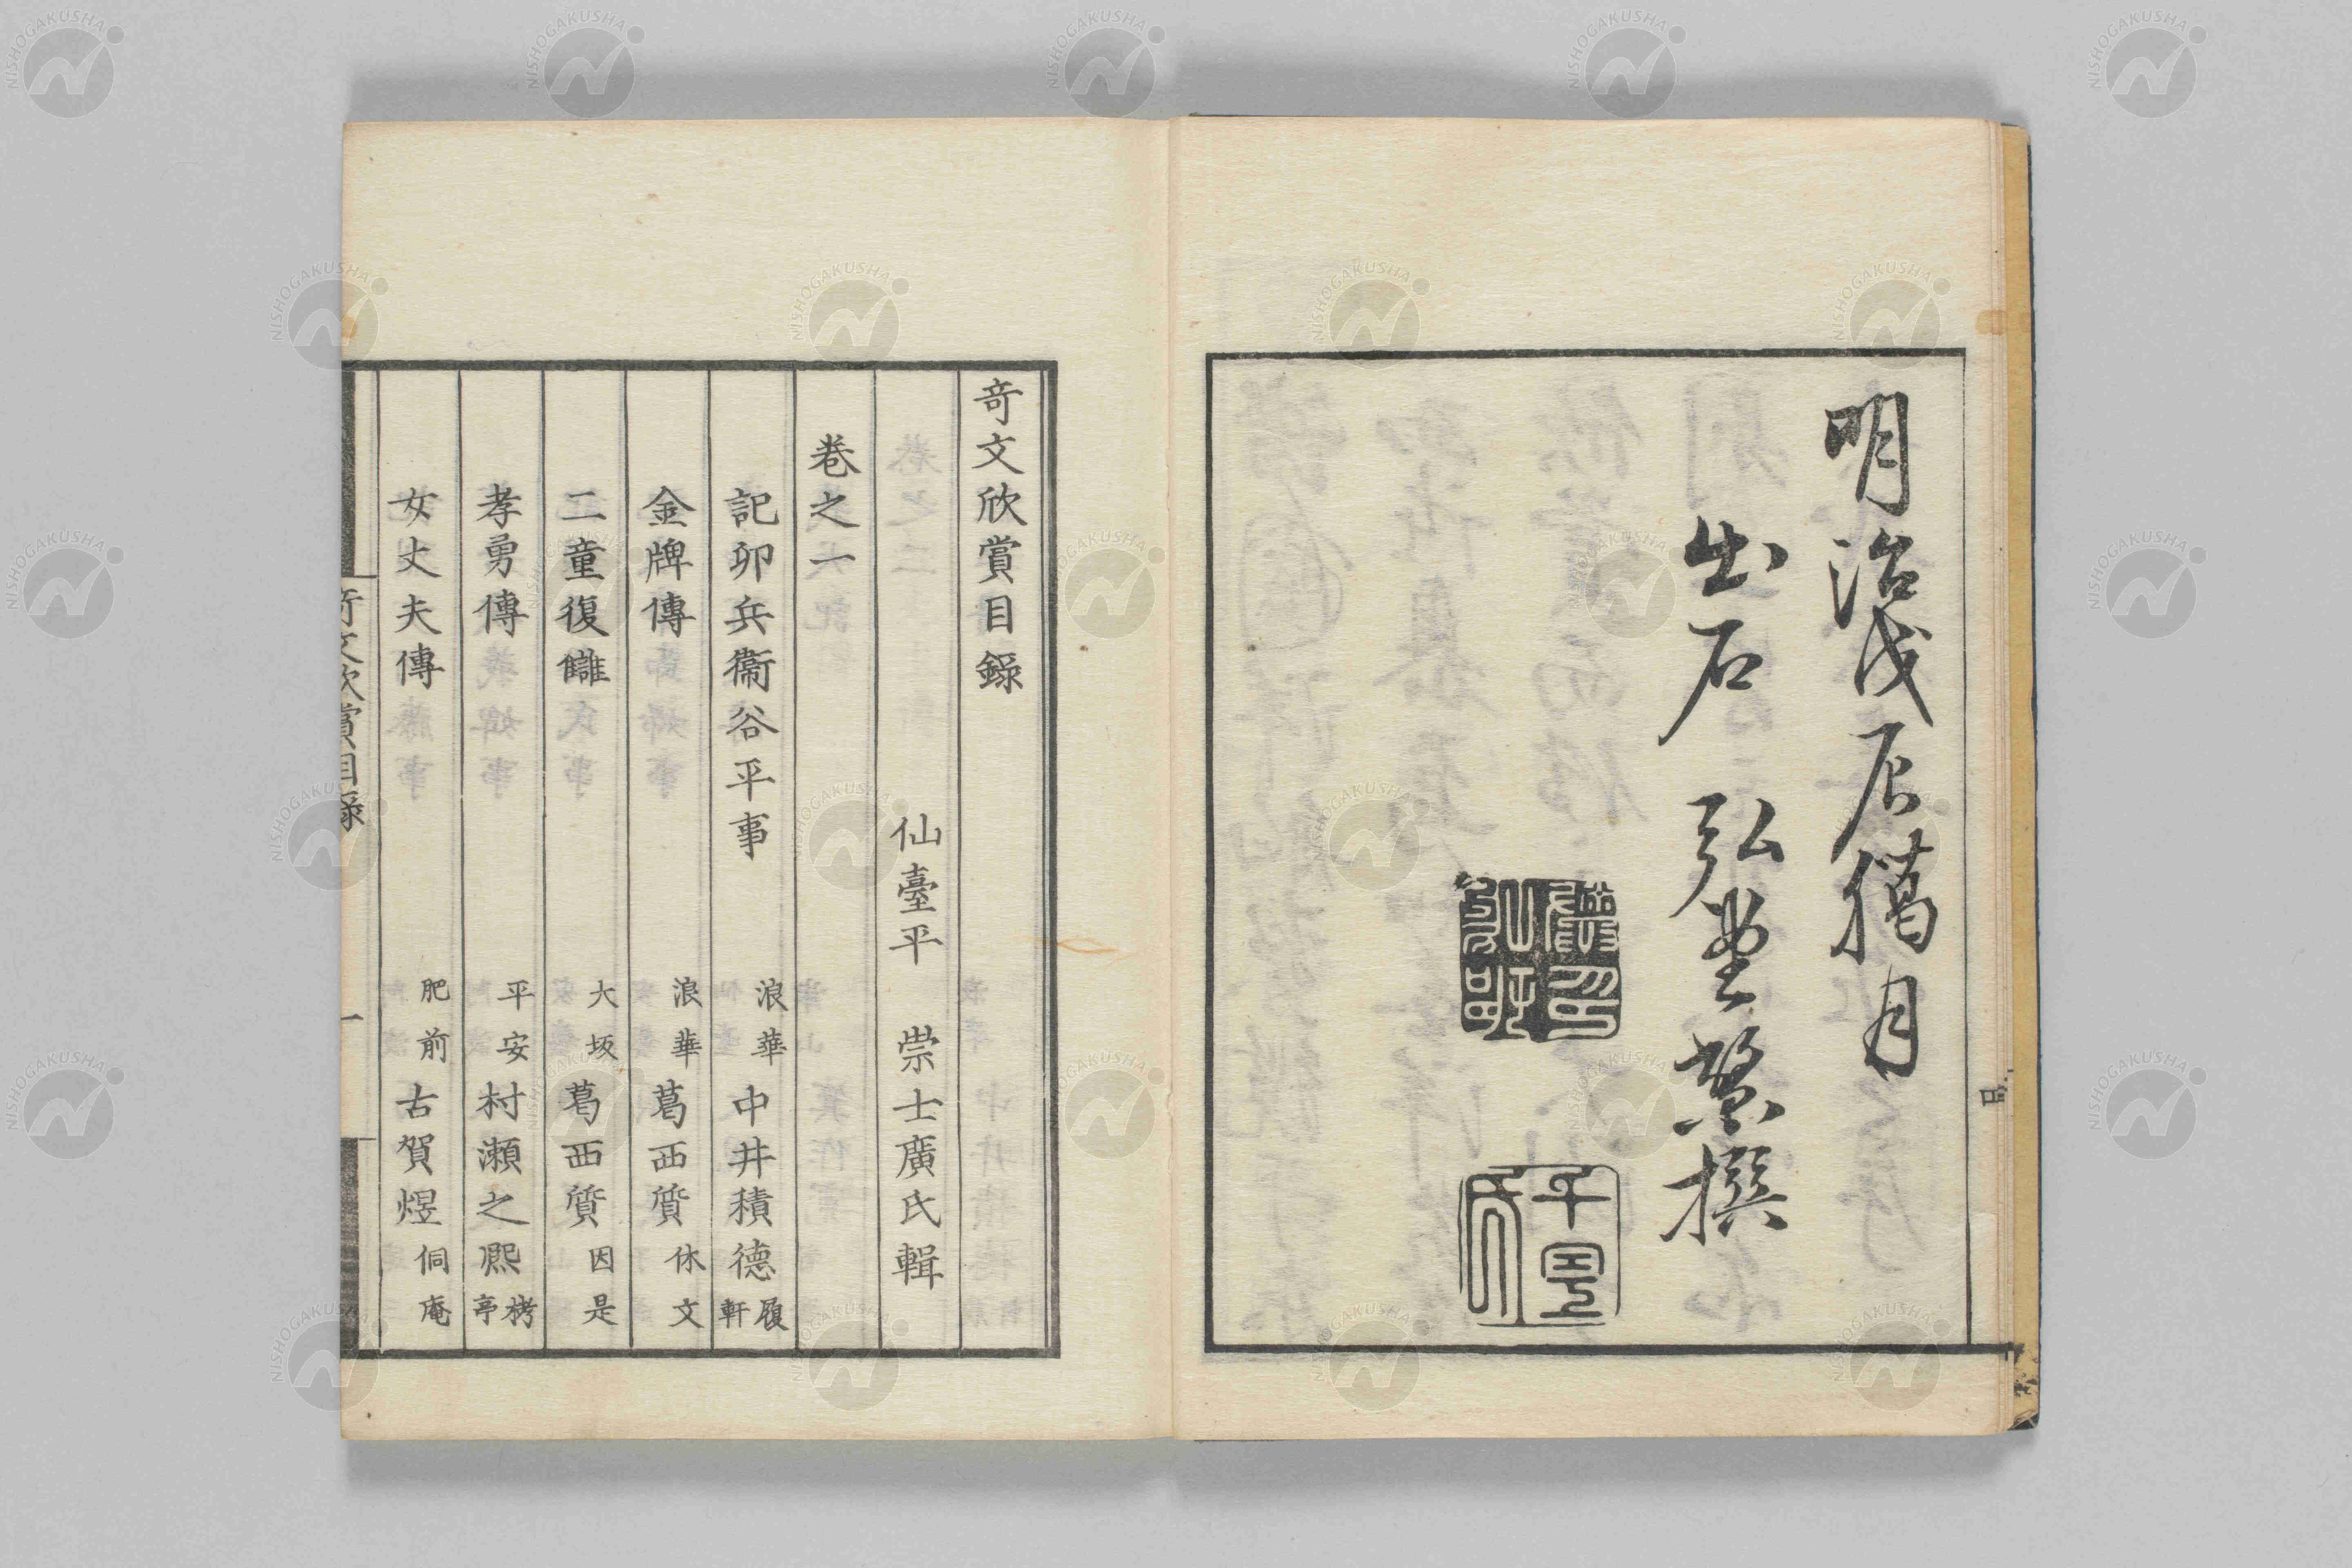 明治戊辰臈月
出石 弘 撰
竒文欣賞目録
仙臺平 崇士廣氏輯
巻之一
記卯兵衞谷平事 浪華 中井積德 履軒
金牌傳 浪華 葛西質 休文
二童復讎 大坂 葛西質 因是
孝勇傳 平安 村瀬之熈 栲亭
女丈夫傳 肥前 古賀煜 侗庵
竒文欣賞目録 一
NISHOGAKUSHA